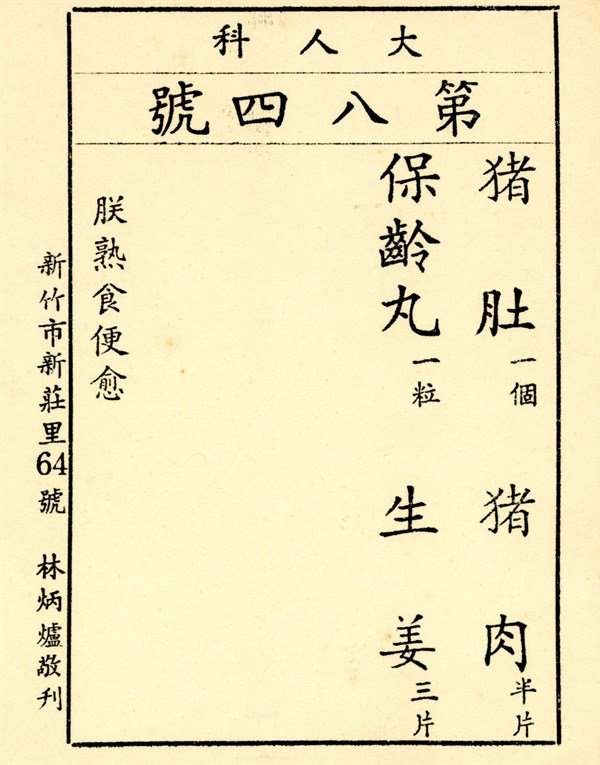 大人科
第八四號
猪肚一個 猪肉半片
保齡丸一粒 生姜三片
朕熟食便愈
新竹市新莊里64號 林炳爐敬刊